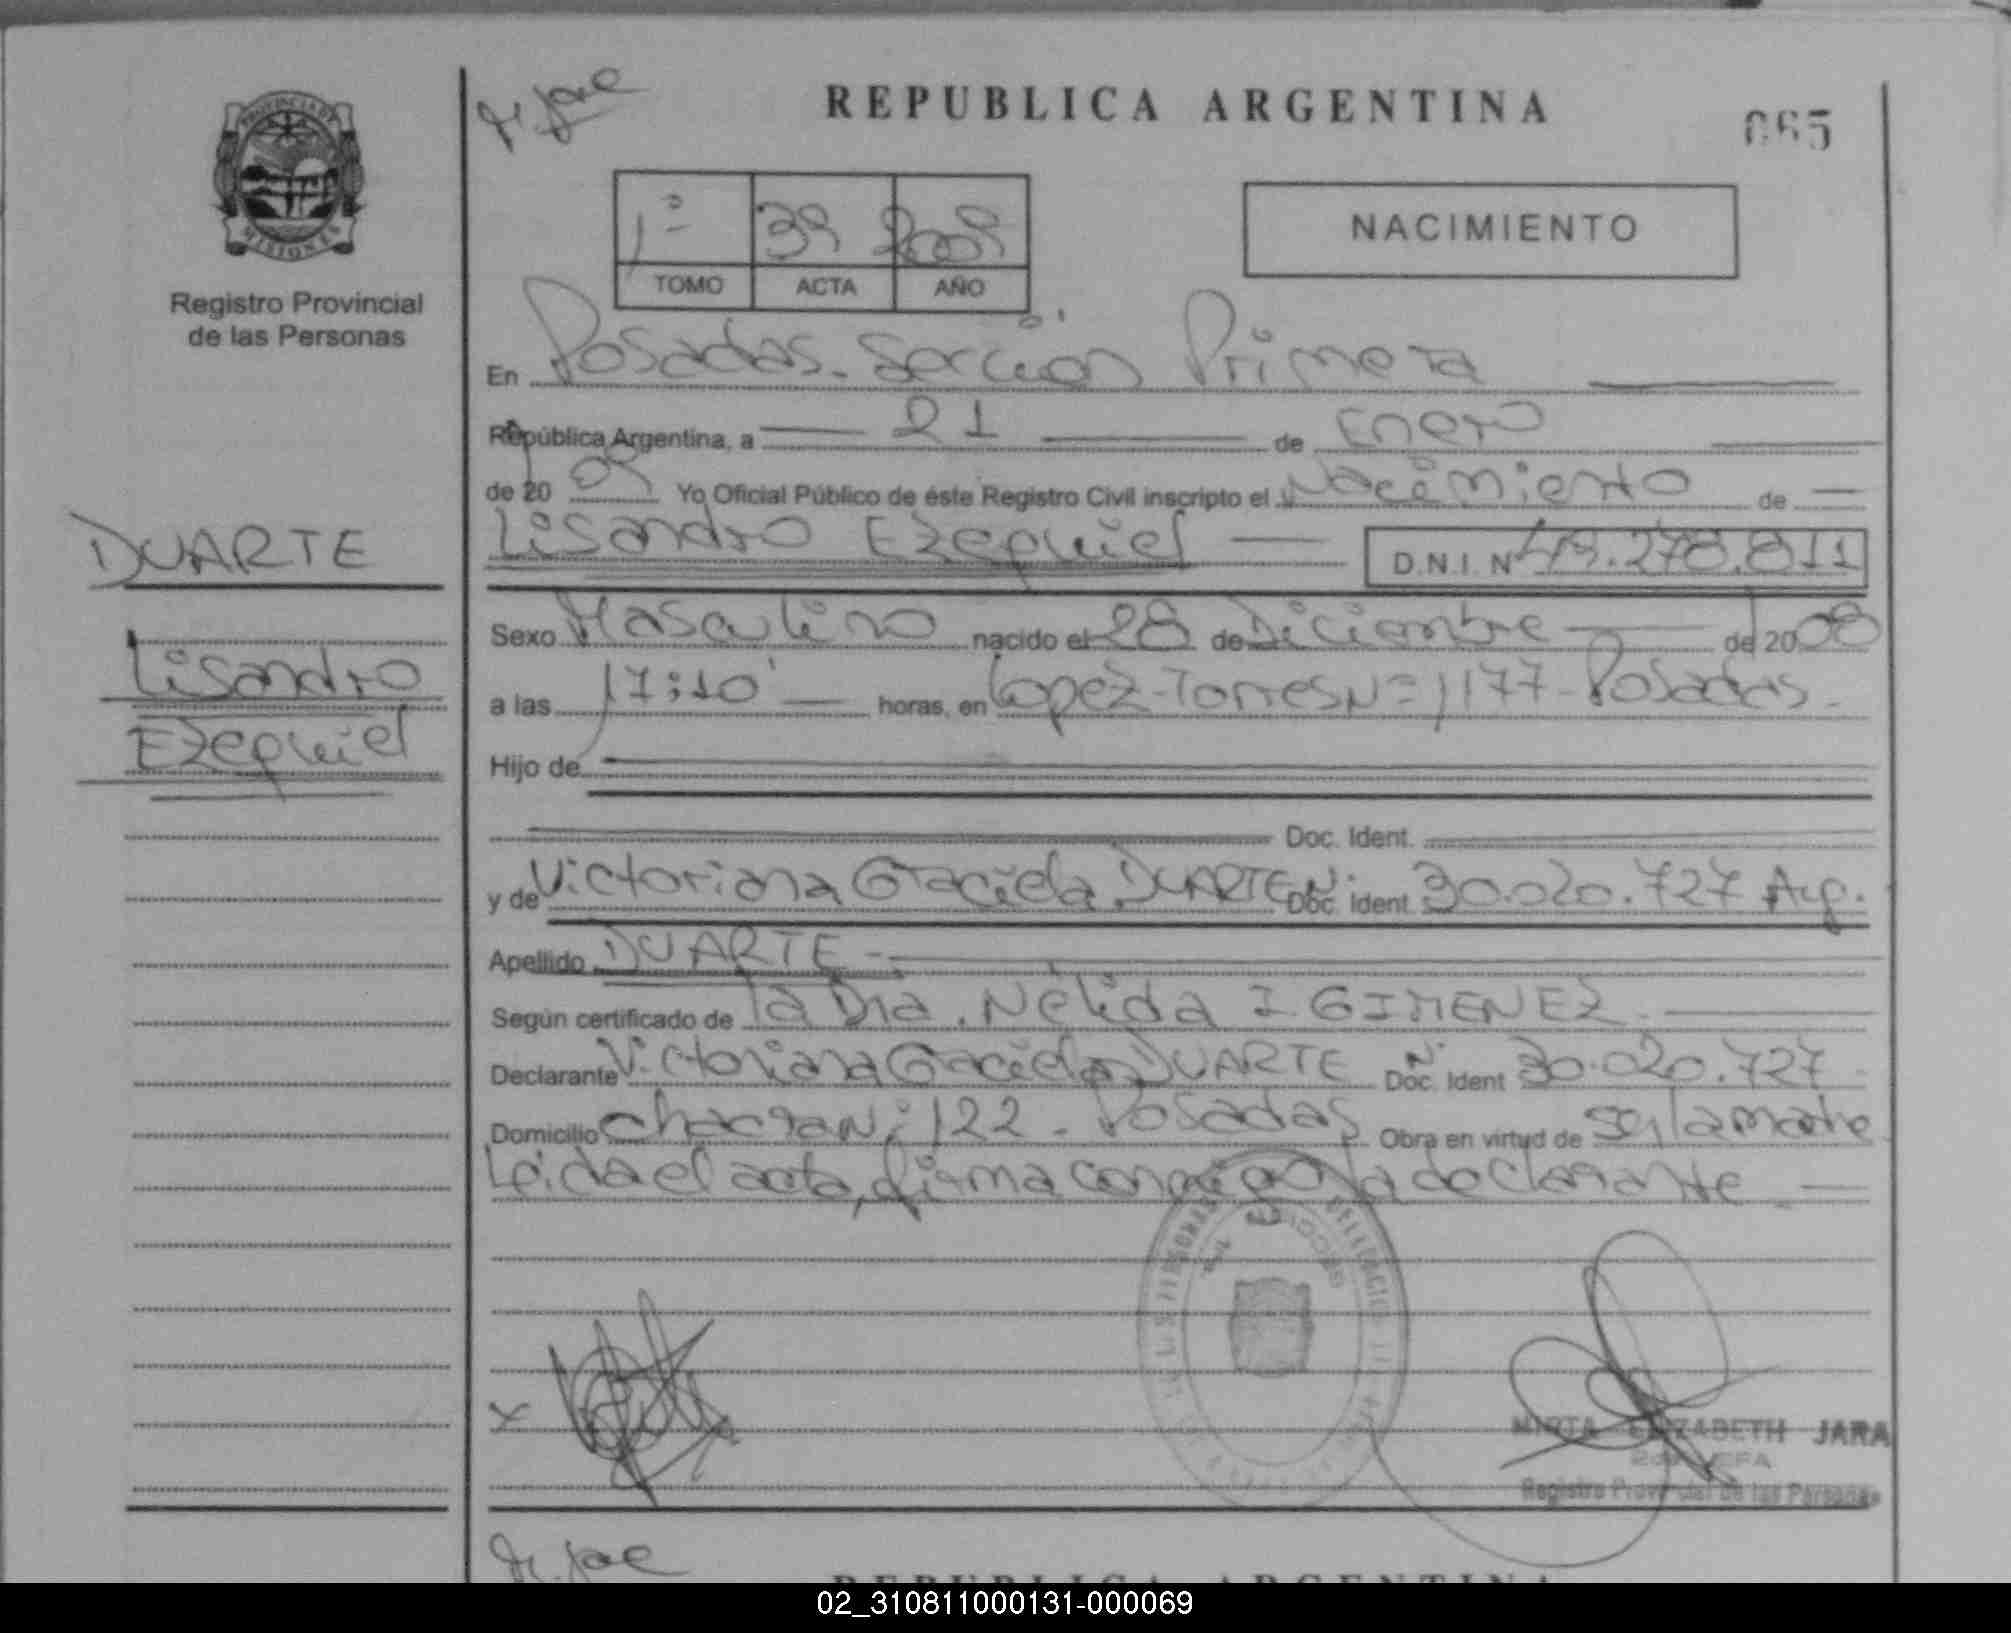 REPUBLICA ARGENTINA
065
PROVINCIA DE
MISIONES
Registro Provincial
de las Personas
1º 39 2009
TOMO ACTA AÑO
NACIMIENTO
En Posadas - Sección Primera
República Argentina, a 21 de Enero
de 2009 Yo Oficial Público de éste Registro Civil inscripto el Nacimiento de
DUARTE
Lisandro Ezequiel D.N.I. Nº 49.278.811
Sexo Masculino nacido el 28 de Diciembre de 2008
Lisandro
a las 17:10' horas, en Lopez Torres Nº 1177 - Posadas -
Ezequiel
Hijo de
Doc. Ident.
y de Victoriana Graciela DUARTE Doc. Ident Nº 30.020.727 Arg.
Apellido DUARTE -
Según certificado de la Dra. Nélida I. GIMENEZ -
Declarante Victoriana Graciela DUARTE Doc. Ident Nº 30.020.727 -
Domicilio Chacra Nº 122 - Posadas Obra en virtud de ser la madre
Leida el acta, firma conmigo la declarante
X
MIRTA ELIZABETH JARA
Registro Provincial de las Personas
REPUBLICA ARGENTINA
02_310811000131-000069